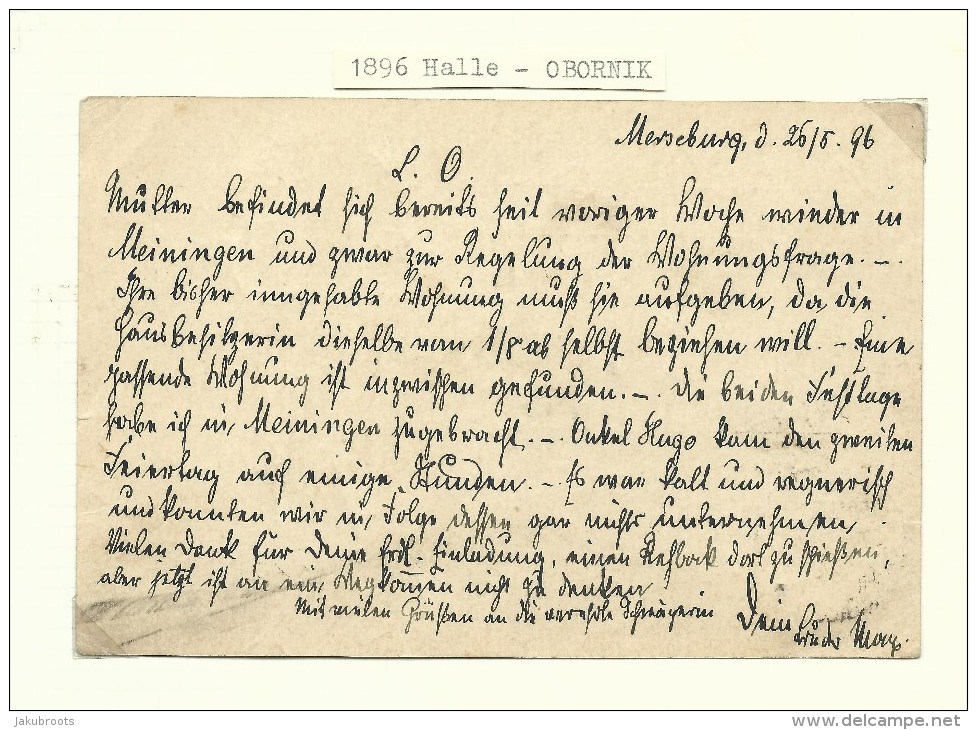 1896 Halle - OBORNIK
Merseburg, d. 26/5. 96
L. O.
Mutter befindet sich bereits seit voriger Woche wieder in
Meiningen und zwar zur Regelung der Wohnungsfrage. –.
Ihre bisher innegehabte Wohnung muß sie aufgeben, da die
Hausbesitzerin dieselbe vom 1/8 ab selbst beziehen will. – Eine
passende Wohnung ist inzwischen gefunden. –. Die beiden Festtage
habe ich in Meiningen zugebracht. –. Onkel Hugo kam den zweiten
Feiertag auf einige Stunden. – Es war kalt und regnerisch
und konnten wir in Folge dessen gar nichts unternehmen.
Vielen Dank für Deine frdl. Einladung, einen Rehbock dort zu schießen,
aber jetzt ist an ein Wegkommen nicht zu denken
Mit vielen Grüßen an die verehrte Schwägerin Dein
Bruder Max.
jakubroots
www.delcampe.net